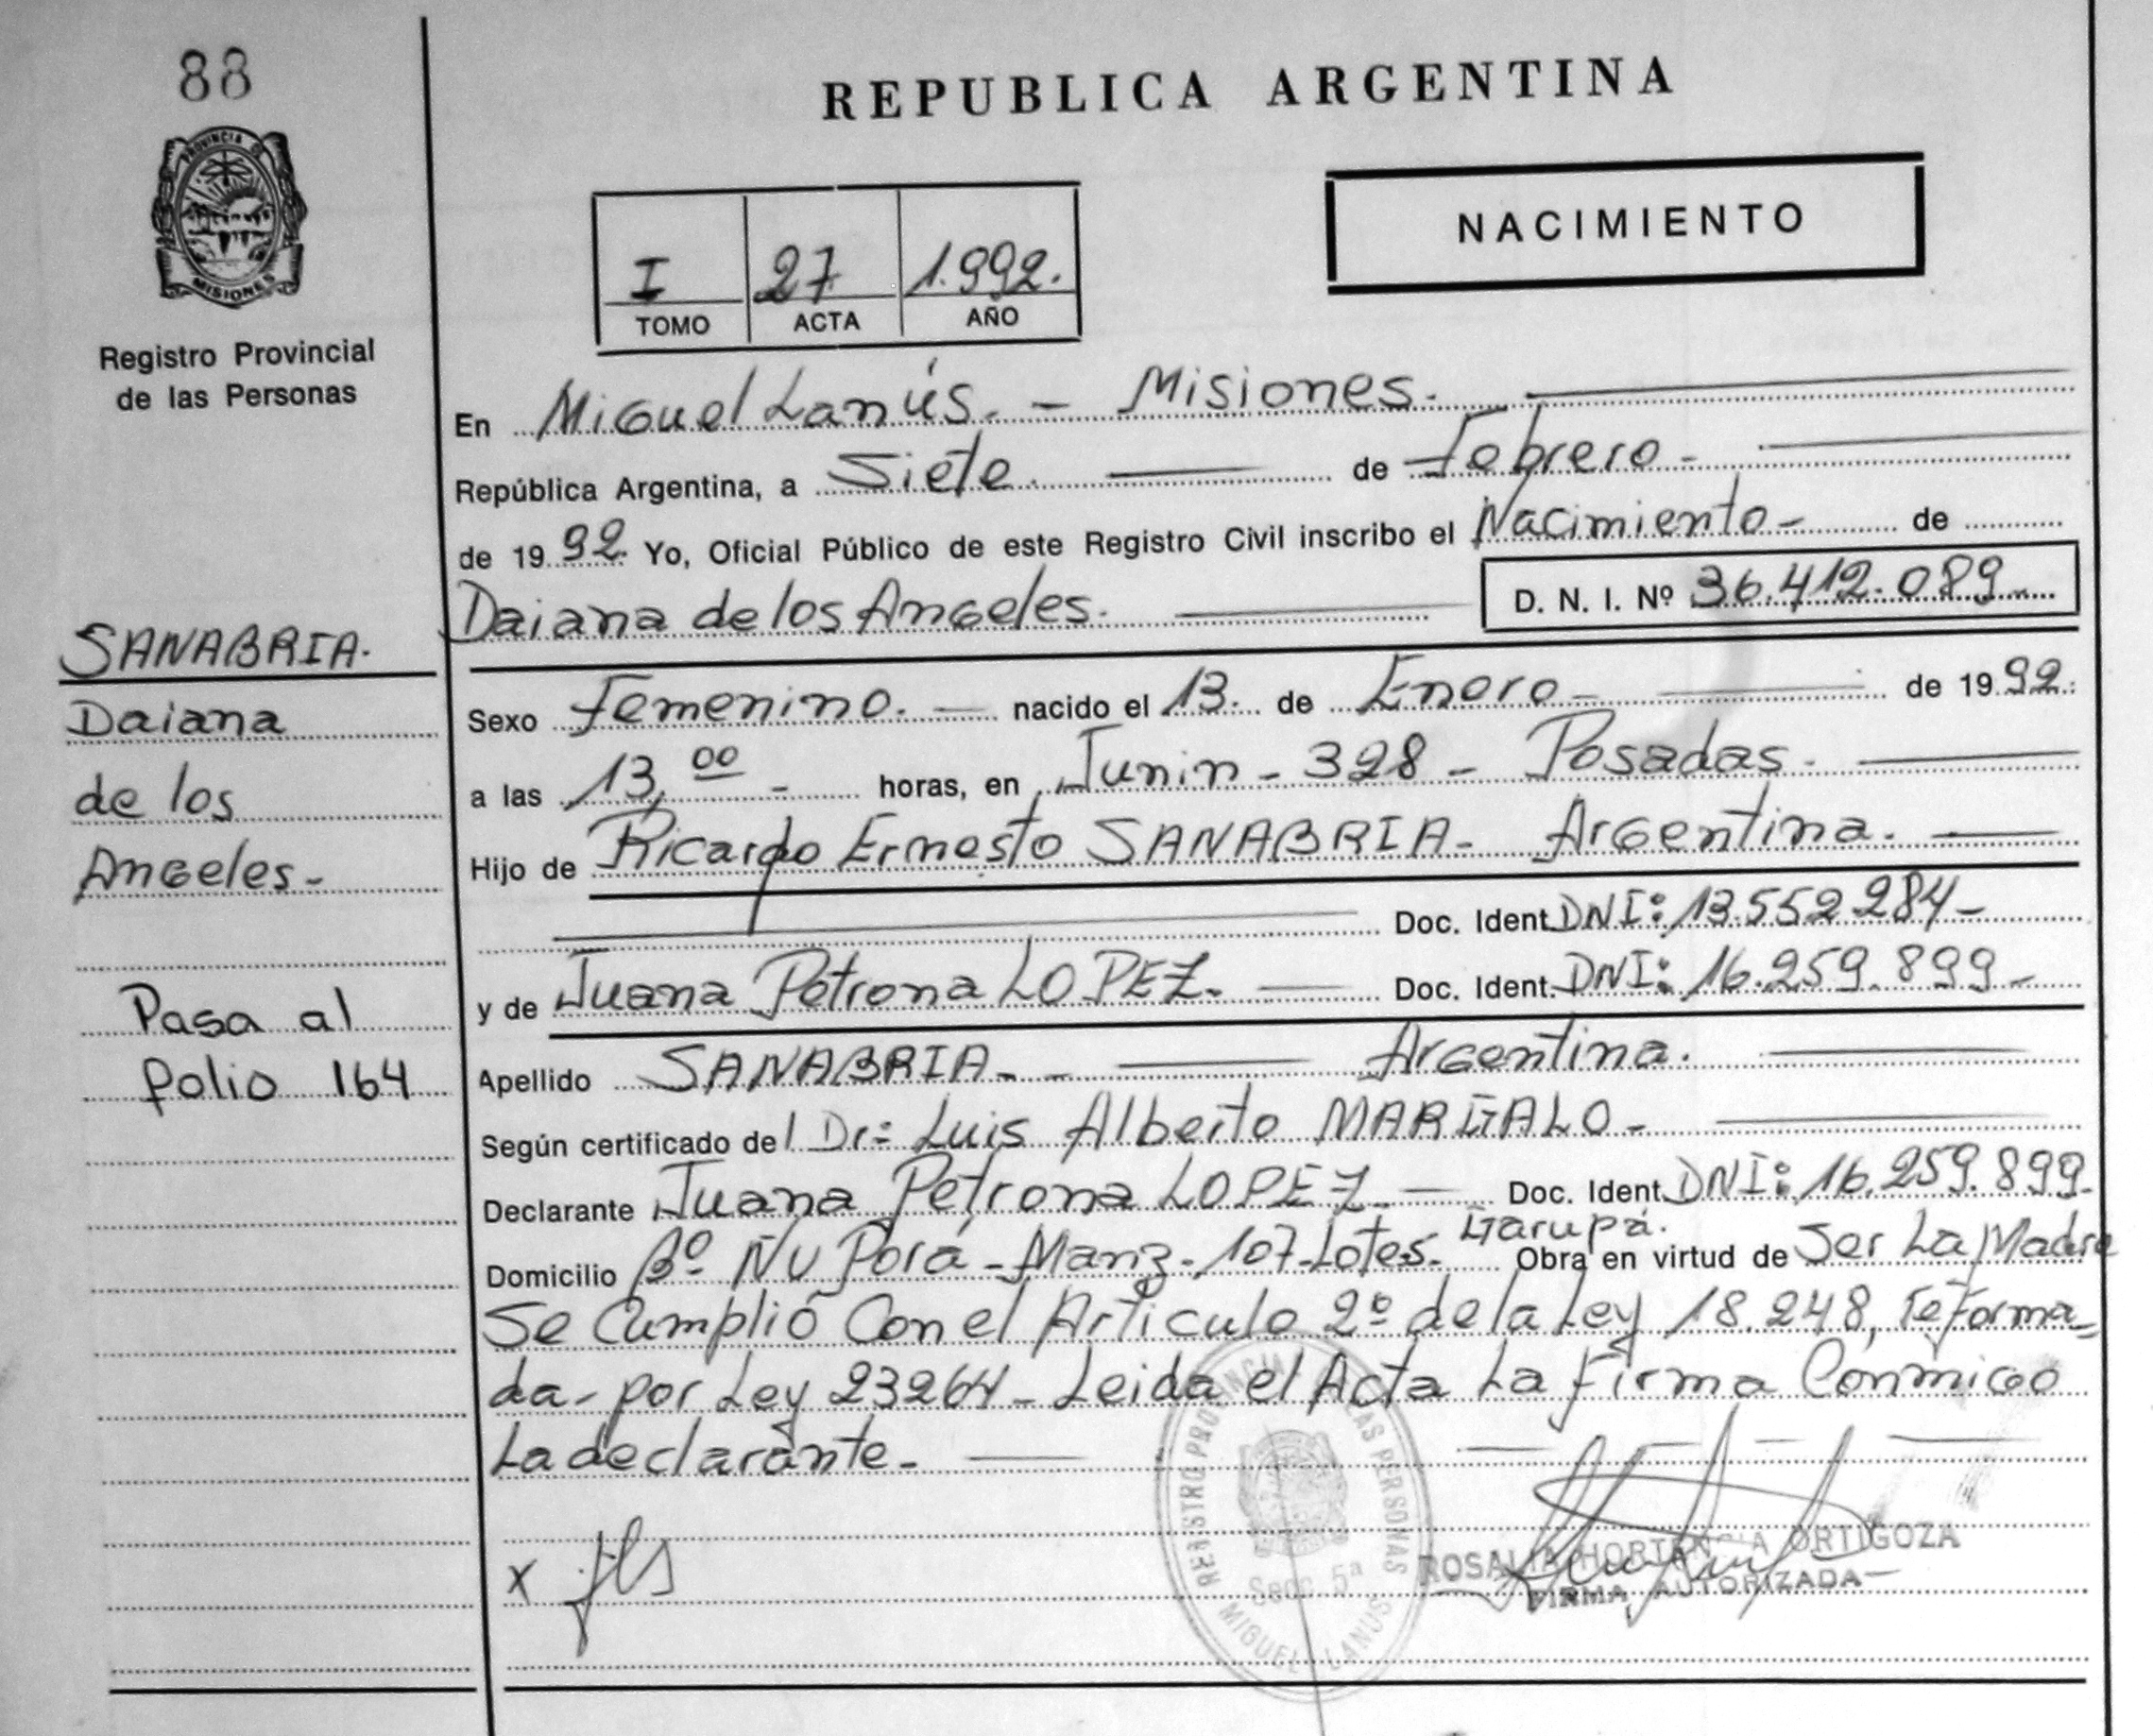 88
REPUBLICA ARGENTINA
PROVINCIA DE
MISIONES
Registro Provincial
de las Personas
NACIMIENTO
I 27 1.992.
TOMO ACTA AÑO
En Miguel Lanús. - Misiones.
República Argentina, a Siete. de Febrero -
de 1992. Yo, Oficial Público de este Registro Civil inscribo el Nacimiento - de
Daiana de los Angeles. D. N. I. Nº 36.412.089
SANABRIA.
Daiana
de los
Angeles -
Pasa al
folio 164
Sexo Femenino. - nacido el 13. de Enero - de 1992.
a las 13,00 - horas, en Junin - 328 - Posadas -
Hijo de Ricardo Ernesto SANABRIA - Argentina.
Doc. Ident. DNI: 13.552.284 -
y de Juana Petrona LOPEZ. Doc. Ident. DNI: 16.259.899 -
Apellido SANABRIA - - Argentina.
Según certificado del Dr: Luis Alberto -
Declarante Juana Petrona LOPEZ - Doc. Ident. DNI: 16.259.899.
Domicilio Bº ÑU Porá - Manz - 107 - Lotes. Garupá. Obra en virtud de Ser La Madre
Se Cumplió Con el Articulo 2º de la Ley 18.248, reforma-
da - por Ley 23264 - Leida el Acta La Firma Conmigo
La declarante -
x
REGISTRO PROVINCIAL DE LAS PERSONAS
Secc. 5ª
MIGUEL LANUS
ROSALIA HORTENCIA ORTIGOZA
FIRMA AUTORIZADA